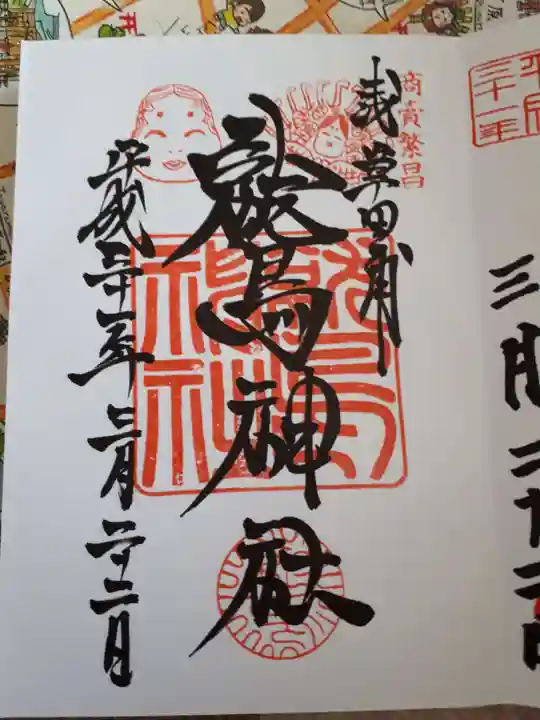 平成
三十一年
三月二十二日
商賣繁昌
浅草田甫
鷲神社
平成三十一年三月二十二日